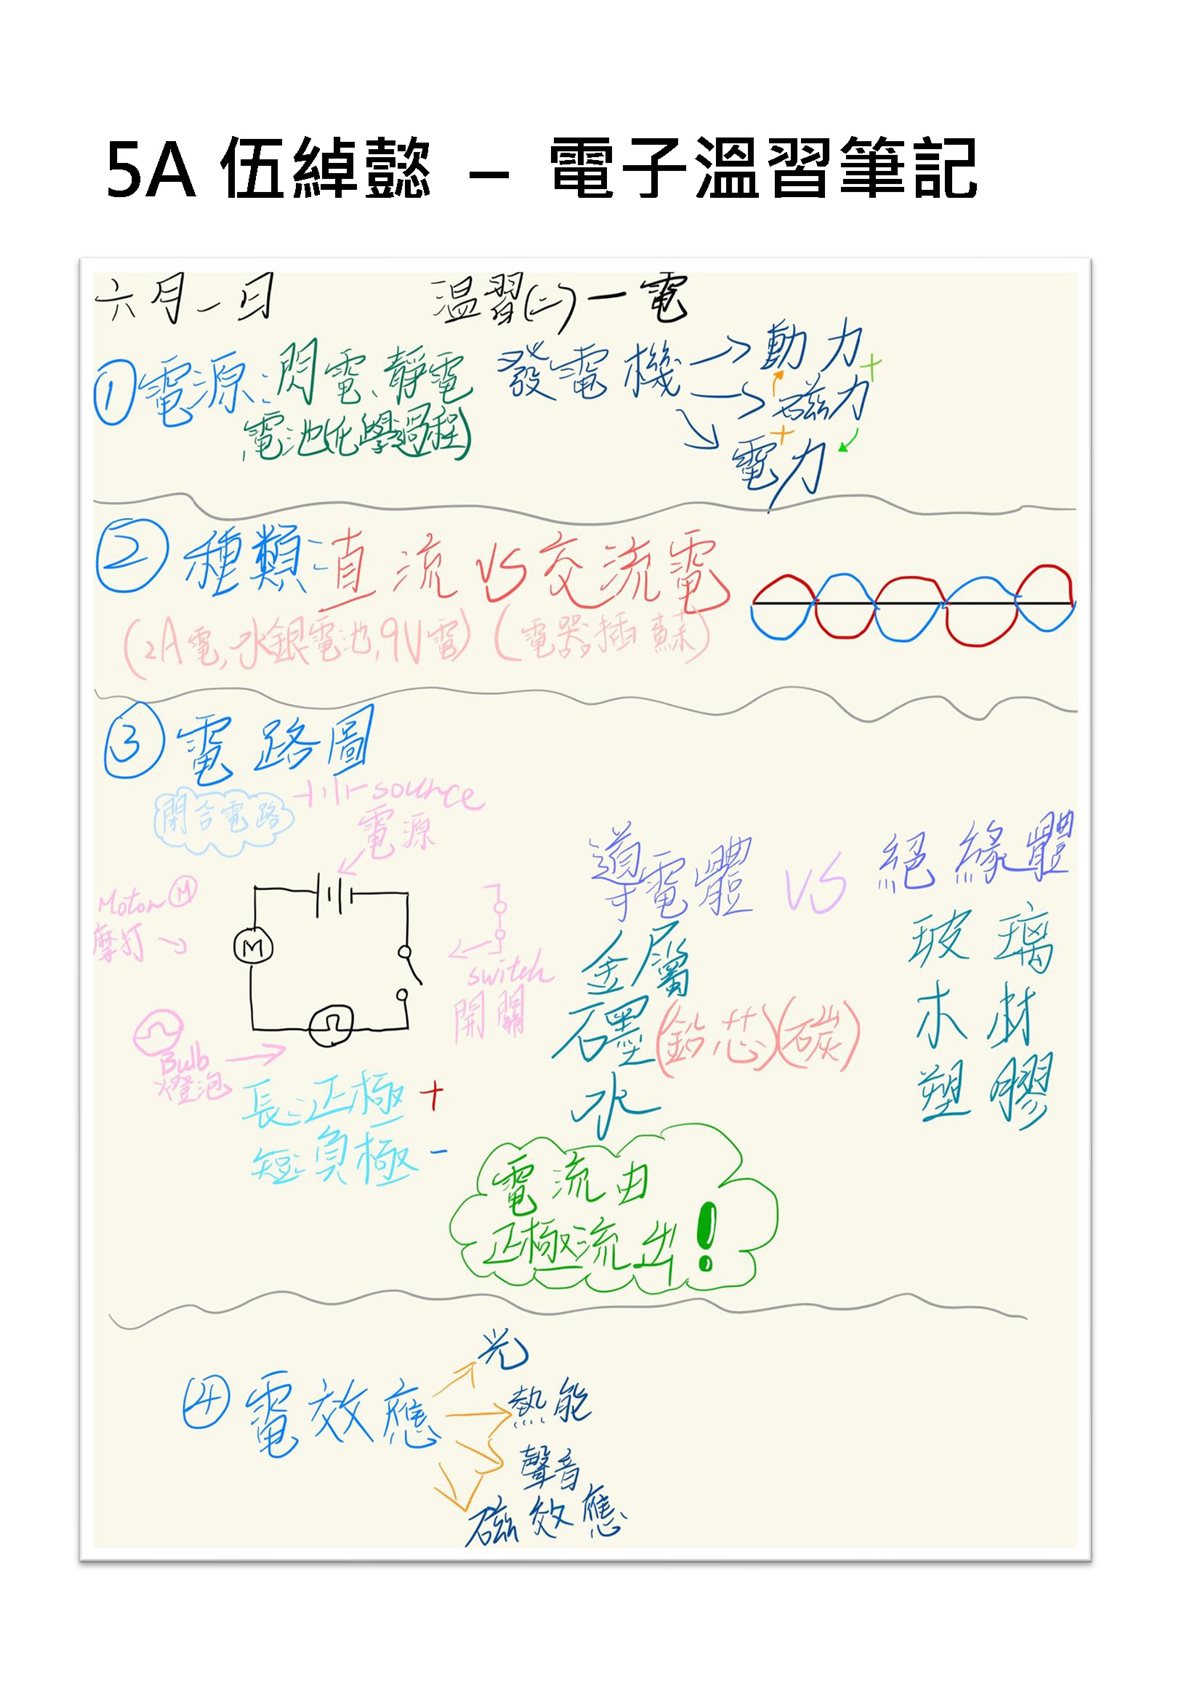 5A 伍綽懿 – 電子溫習筆記
六月一日 温習(二)一電
①電源:閃電、靜電
電池(化學過程)
發電機 → 動力
+
→ 磁力
+
電力
②種類:直流 VS 交流電
(2A電,水銀電池,9V電) (電器插蘇)
③電路圖
閉合電路
source
電源
Motor Ⓜ
摩打
M
switch
開關
Bulb
燈泡
長:正極 +
短:負極 -
導電體 VS 絕緣體
金屬
石墨(鉛芯)(碳)
水
玻璃
木材
塑膠
電流由
正極流出!
④電效應
光
熱能
聲音
磁效應